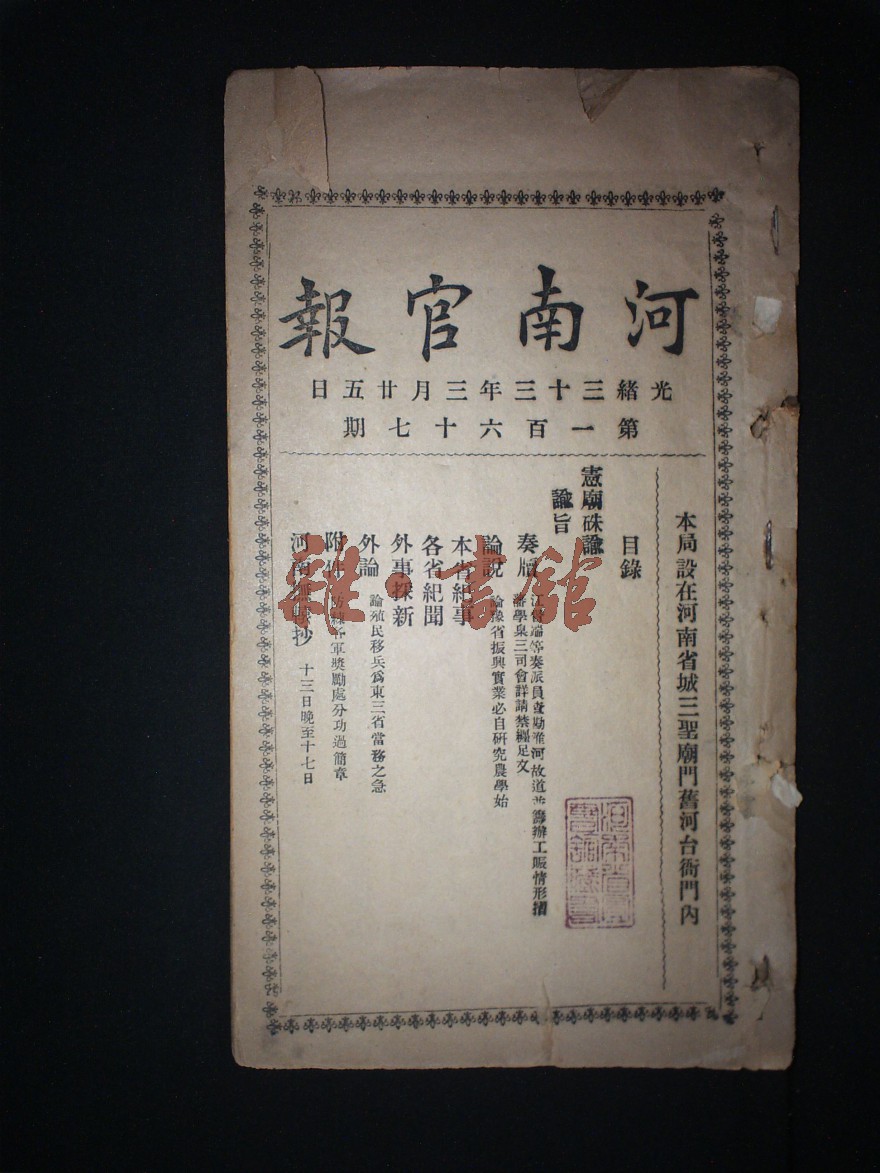 河南官報
光緒三十三年三月廿五日
第一百六十七期
本局設在河南省城三聖廟門舊河台衙門內
目錄
憲廟硃諭
諭旨
奏牘
江督端等奏派員查勘淮河故道並籌辦工賑情形摺
藩學臬三司會詳請禁纏足文
論說
論豫省振興實業必自研究農學始
本省紀事
各省紀聞
外事採新
外論
論殖民移兵為東三省當務之急
附件
防練各軍獎勵處分功過簡章
河南轅門抄
十三日晚至十七日
雜·書館
河南省圖書館藏書